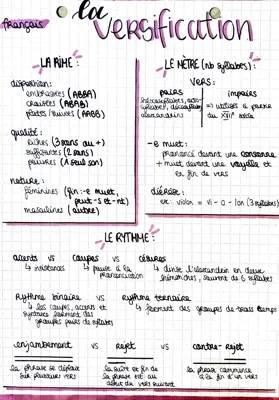 français
la
Versification
LA RIME :
disposition:
embrassées (ABBA)
croisées (ABAB)
plates/suivies (AABB)
qualité :
riches (3 sons au +)
suffisantes (2 sons)
pauvres (1 seul son)
nature :
féminines (fin: -e muet,
peut -s et -nt)
masculines (autre)
LE MÈTRE (nb syllabes) :
VERS :
pairs
impairs
alexandrins
=> utilisés à partir
du XIXe siècle
-e muet:
prononcé devant une consonne
≠ muet devant une voyelle et
en fin de vers
diérèse :
ex: violon = vi - o - lon (3 syllabes)
LE RYTHME :
accents vs coupes vs césures
↳ insistances
↳ pause à la
prononciation
↳ divise l'alexandrin en deux
hémistiches, souvent de 6 syllabes
Rythme binaire vs rythme ternaire
↳ les coupes, accents et
césures forment des
groupes pairs de syllabes
↳ forment des groupes de trois temps
enjambement vs rejet vs contre-rejet
la phrase se déploie
sur plusieurs vers
la suite et fin de
la phrase est au
début du vers suivant
la phrase commence
à la fin d'un vers